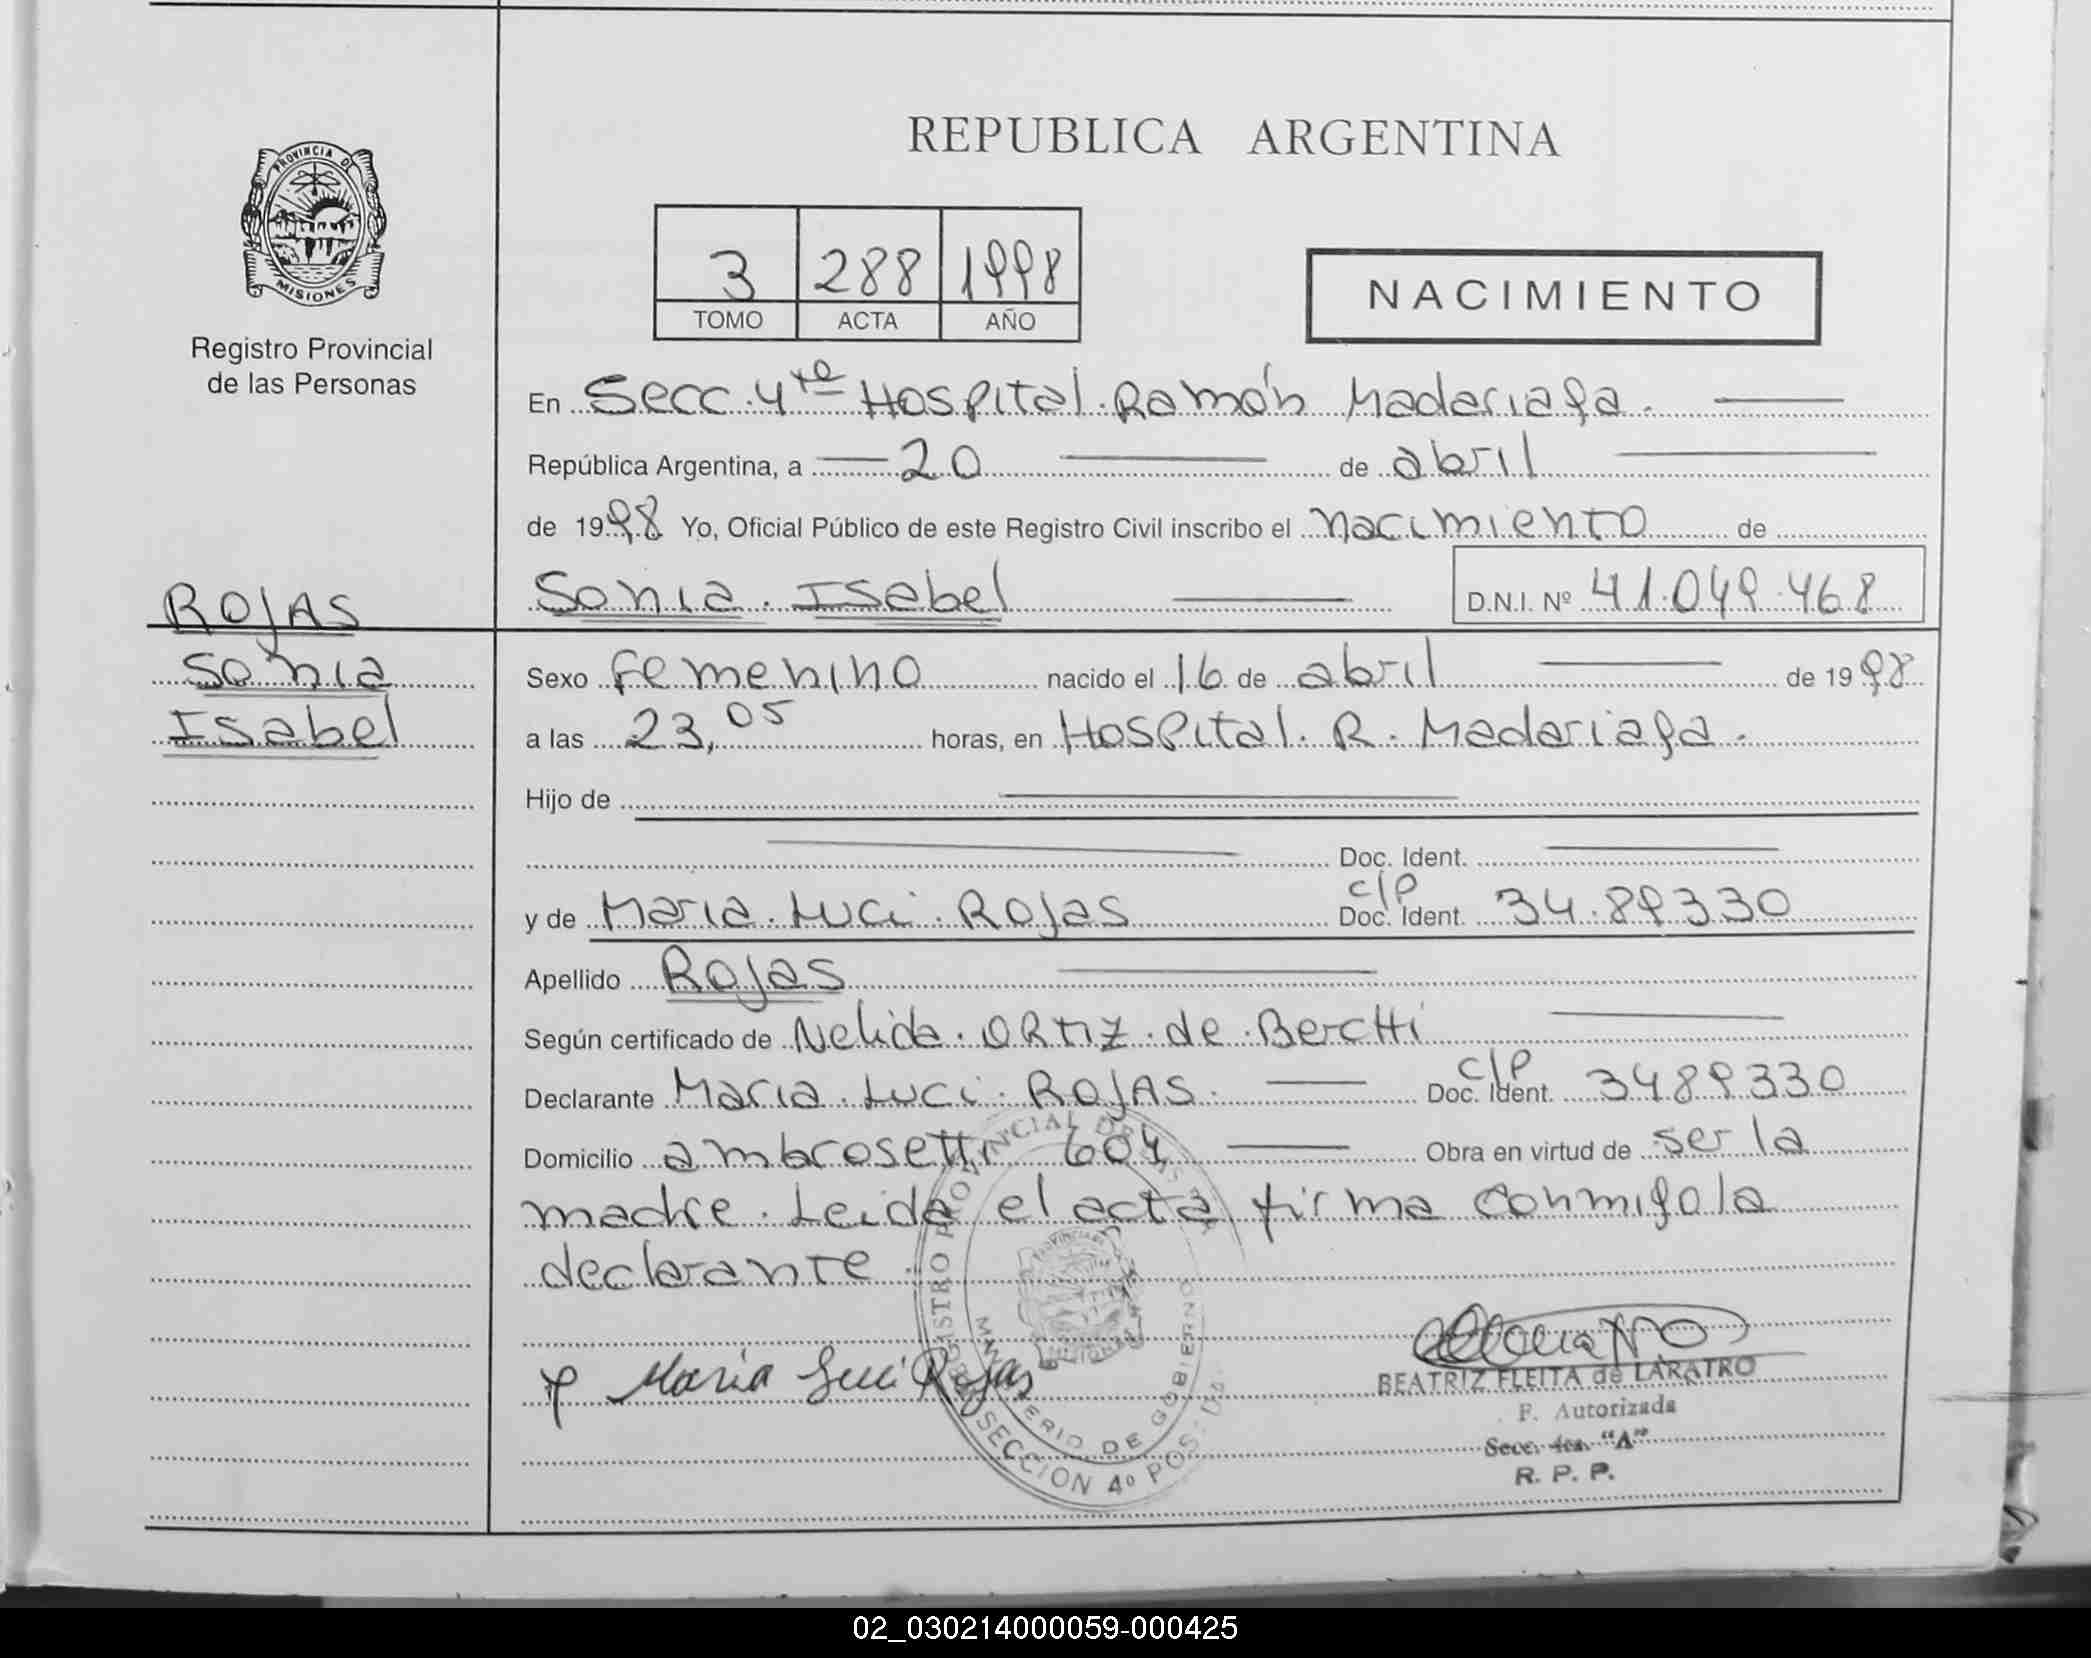 REPUBLICA ARGENTINA
PROVINCIA DE
MISIONES
Registro Provincial
de las Personas
3 288 1998
TOMO ACTA AÑO
NACIMIENTO
En Secc. 4ta Hospital. Ramón Madariaga.
República Argentina, a 20 de abril
de 1998 Yo, Oficial Público de este Registro Civil inscribo el nacimiento de
Sonia. Isabel D.N.I. Nº 41.049.468
ROJAS
Sonia
Isabel
Sexo femenino nacido el 16 de abril de 1998
a las 23,05 horas, en Hospital. R. Madariaga.
Hijo de
Doc. Ident.
y de Maria. Luci. Rojas C/P Doc. Ident. 34.89330
Apellido Rojas
Según certificado de Nelida. ORtiz. de. Berctti
Declarante Maria. Luci. ROJAS. C/P Doc. Ident. 3489330
Domicilio ambrosetti 604 Obra en virtud de ser la
madre. Leida el acta firma conmigo la
declarante.
REGISTRO PROVINCIAL DE LAS
MINISTERIO DE GOBIERNO
SECCION 4º POS.
Maria Luci Rojas
BEATRIZ FLEITA de LARATRO
F. Autorizada
Secc. 4ta. "A"
R. P. P.
02_030214000059-000425